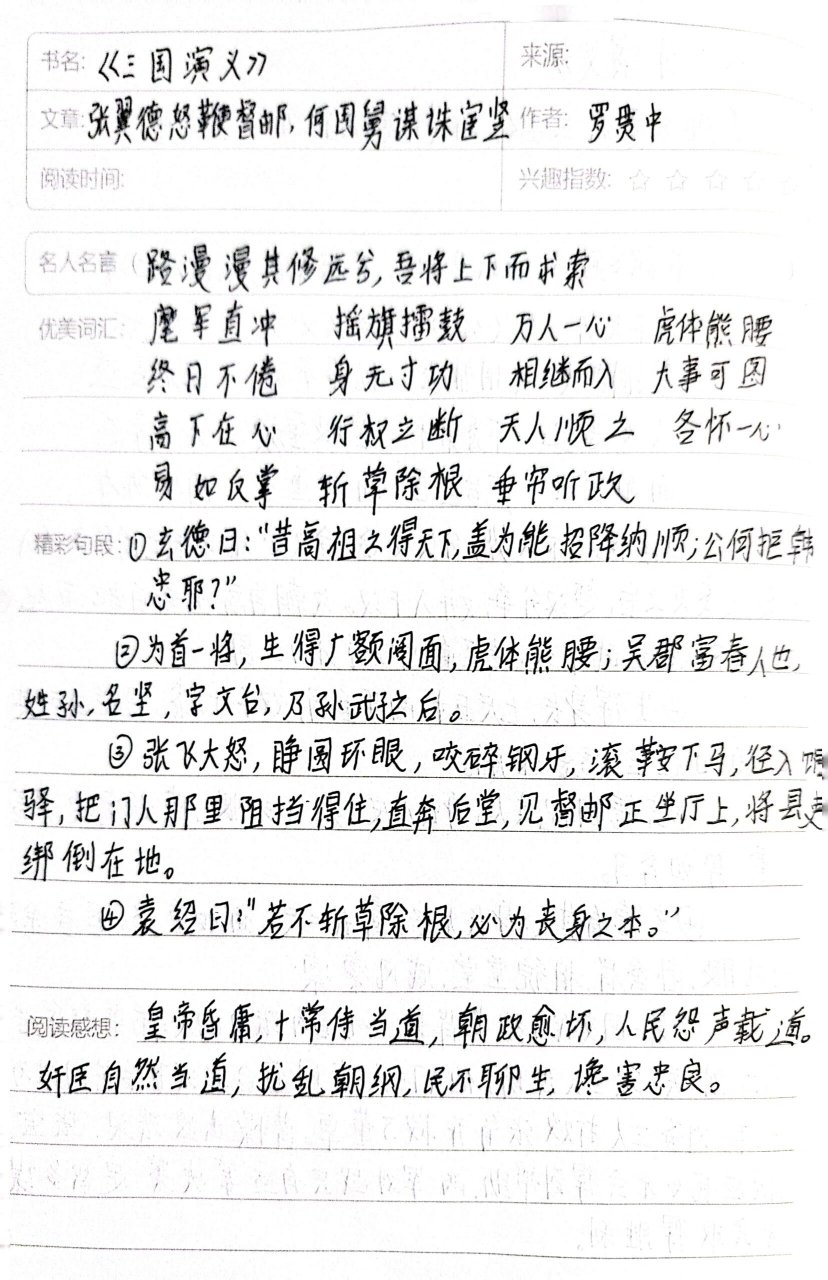 书名: 《三国演义》 来源:
文章: 张翼德怒鞭督邮,何国舅谋诛宦竖 作者: 罗贯中
阅读时间: 兴趣指数: ☆ ☆ ☆ ☆ ☆
名人名言( 路漫漫其修远兮,吾将上下而求索 )
优美词汇: 麾军直冲 摇旗擂鼓 万人一心 虎体熊腰
终日不倦 身无寸功 相继而入 大事可图
高下在心 行权立断 天人顺之 各怀一心
易如反掌 斩草除根 垂帘听政
精彩句段: ①玄德曰:“昔高祖之得天下,盖为能招降纳顺;公何拒韩
忠耶?”
②为首一将,生得广额阔面,虎体熊腰;吴郡富春人也,
姓孙,名坚,字文台,乃孙武子之后。
③张飞大怒,睁圆环眼,咬碎钢牙,滚鞍下马,径入馆
驿,把门人那里阻挡得住,直奔后堂,见督邮正坐厅上,将县吏
绑倒在地。
④袁绍曰:“若不斩草除根,必为丧身之本。”
阅读感想: 皇帝昏庸,十常侍当道,朝政愈坏,人民怨声载道。
奸臣自然当道,扰乱朝纲,民不聊生,谗害忠良。